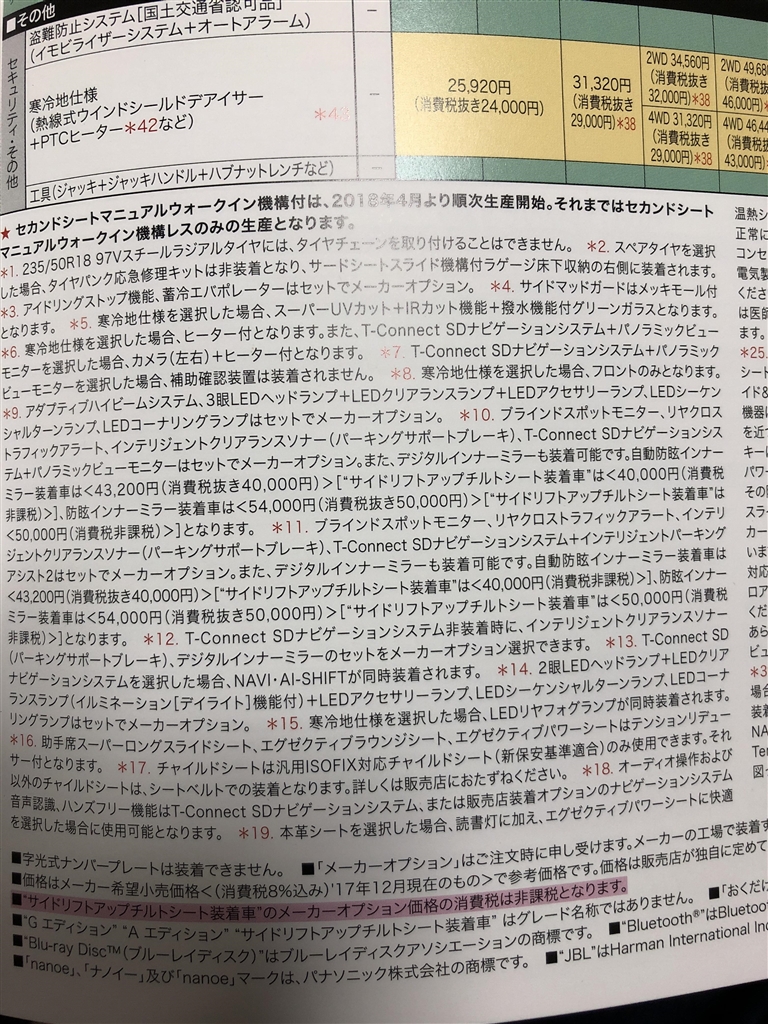 ■その他
盗難防止システム[国土交通省認可品]
(イモビライザーシステム+オートアラーム)
–
セキュリティ・その他
寒冷地仕様
(熱線式ウインドシールドデアイサー
+PTCヒーター*42など)
–
25,920円
(消費税抜き24,000円)
31,320円
(消費税抜き
29,000円)*38
2WD 34,560円
(消費税抜き
32,000円)*38
4WD 31,320円
(消費税抜き
29,000円)*38
2WD 49,68
(消費税抜き
46,000円)*
4WD 46,44
(消費税抜き
43,000円)*
工具(ジャッキ+ジャッキハンドル+ハブナットレンチなど)
–
★ セカンドシートマニュアルウォークイン機構付は、2018年4月より順次生産開始。それまではセカンドシート
マニュアルウォークイン機構レスのみの生産となります。
*1. 235/50R18 97Vスチールラジアルタイヤには、タイヤチェーンを取り付けることはできません。 *2. スペアタイヤを選択
した場合、タイヤパンク応急修理キットは非装着となり、サードシートスライド機構付ラゲージ床下収納の右側に装着されます。
*3. アイドリングストップ機能、蓄冷エバポレーターはセットでメーカーオプション。 *4. サイドマッドガードはメッキモール付
となります。 *5. 寒冷地仕様を選択した場合、スーパーUVカット+IRカット機能+撥水機能付グリーンガラスとなります。
*6. 寒冷地仕様を選択した場合、ヒーター付となります。また、T-Connect SDナビゲーションシステム+パノラミックビュー
モニターを選択した場合、カメラ(左右)+ヒーター付となります。 *7. T-Connect SDナビゲーションシステム+パノラミック
ビューモニターを選択した場合、補助確認装置は装着されません。 *8. 寒冷地仕様を選択した場合、フロントのみとなります。
*9. アダプティブハイビームシステム、3眼LEDヘッドランプ+LEDクリアランスランプ+LEDアクセサリーランプ、LEDシーケン
シャルターンランプ、LEDコーナリングランプはセットでメーカーオプション。 *10. ブラインドスポットモニター、リヤクロス
トラフィックアラート、インテリジェントクリアランスソナー(パーキングサポートブレーキ)、T-Connect SDナビゲーションシス
テム+パノラミックビューモニターはセットでメーカーオプション。また、デジタルインナーミラーも装着可能です。自動防眩インナー
ミラー装着車は<43,200円(消費税抜き40,000円)>[“サイドリフトアップチルトシート装着車”は<40,000円(消費税
非課税)>]、防眩インナーミラー装着車は<54,000円(消費税抜き50,000円)>[“サイドリフトアップチルトシート装着車”は
<50,000円(消費税非課税)>]となります。 *11. ブラインドスポットモニター、リヤクロストラフィックアラート、インテリ
ジェントクリアランスソナー(パーキングサポートブレーキ)、T-Connect SDナビゲーションシステム+インテリジェントパーキング
アシスト2はセットでメーカーオプション。また、デジタルインナーミラーも装着可能です。自動防眩インナーミラー装着車は
<43,200円(消費税抜き40,000円)>[“サイドリフトアップチルトシート装着車”は<40,000円(消費税非課税)>]、防眩インナー
ミラー装着車は<54,000円(消費税抜き50,000円)>[“サイドリフトアップチルトシート装着車”は<50,000円(消費税
非課税)>]となります。 *12. T-Connect SDナビゲーションシステム非装着時に、インテリジェントクリアランスソナー
(パーキングサポートブレーキ)、デジタルインナーミラーのセットをメーカーオプション選択できます。 *13. T-Connect SD
ナビゲーションシステムを選択した場合、NAVI・AI-SHIFTが同時装着されます。 *14. 2眼LEDヘッドランプ+LEDクリア
ランスランプ(イルミネーション[デイライト]機能付)+LEDアクセサリーランプ、LEDシーケンシャルターンランプ、LEDコーナ
リングランプはセットでメーカーオプション。 *15. 寒冷地仕様を選択した場合、LEDリヤフォグランプが同時装着されます。
*16. 助手席スーパーロングスライドシート、エグゼクティブラウンジシート、エグゼクティブパワーシートはテンションリデュー
サー付となります。 *17. チャイルドシートは汎用ISOFIX対応チャイルドシート(新保安基準適合)のみ使用できます。それ
以外のチャイルドシートは、シートベルトでの装着となります。詳しくは販売店におたずねください。 *18. オーディオ操作および
音声認識、ハンズフリー機能はT-Connect SDナビゲーションシステム、または販売店装着オプションのナビゲーションシステム
を選択した場合に使用可能となります。 *19. 本革シートを選択した場合、読書灯に加え、エグゼクティブパワーシートに快適
■字光式ナンバープレートは装着できません。 ■「メーカーオプション」はご注文時に申し受けます。メーカーの工場で装着す
■価格はメーカー希望小売価格<(消費税8%込み)'17年12月現在のもの>で参考価格です。価格は販売店が独自に定めて
■“サイドリフトアップチルトシート装着車”のメーカーオプション価格の消費税は非課税となります。
■“G エディション” “A エディション” “サイドリフトアップチルトシート装着車” はグレード名称ではありません。 ■「おくだけ
■“Blu-ray Disc™(ブルーレイディスク)”はブルーレイディスクアソシエーションの商標です。 ■“Bluetooth®”はBluetoo
■「nanoe」、「ナノイー」及び「nanoe」マークは、パナソニック株式会社の商標です。 ■“JBL”はHarman International Inc
温熱シ
正常に
コンセ
電気製
くださ
は医師
ます。
*25.
シート
イド&
機器に
を近づ
キーに
パワー
その際
スラー
カー
いま
対応
ロア
くだ
あら
ビュ
*3
場合
装着
NA
Ter
図っ